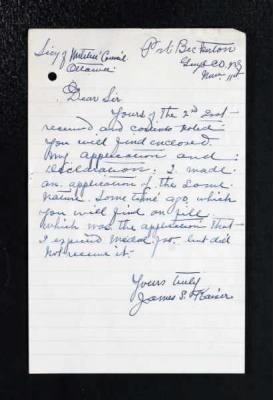 Secy of Militia Council
Ottawa
Port Bickerton
Guys Co. N.S.
Nov 11th
Dear Sir
Yours of the 2nd inst
received and noted
you will find enclosed
my application and
declaration; I made
an application of the same
nature some time ago, which
you will find on fill
which was the application that
I medal for. but did
not receive it.
Yours truly
James S. Kaiser